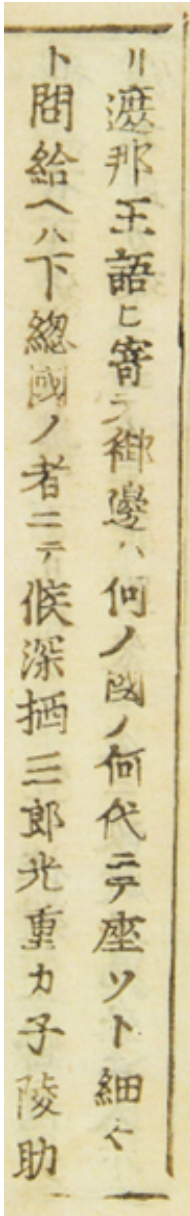 リ遮那王語ヒ寄テ御邊ハ何ノ國ノ何代ニテ座ソト細々
ト問給ヘハ下総國ノ者ニテ候深栖三郎光重カ子陵助